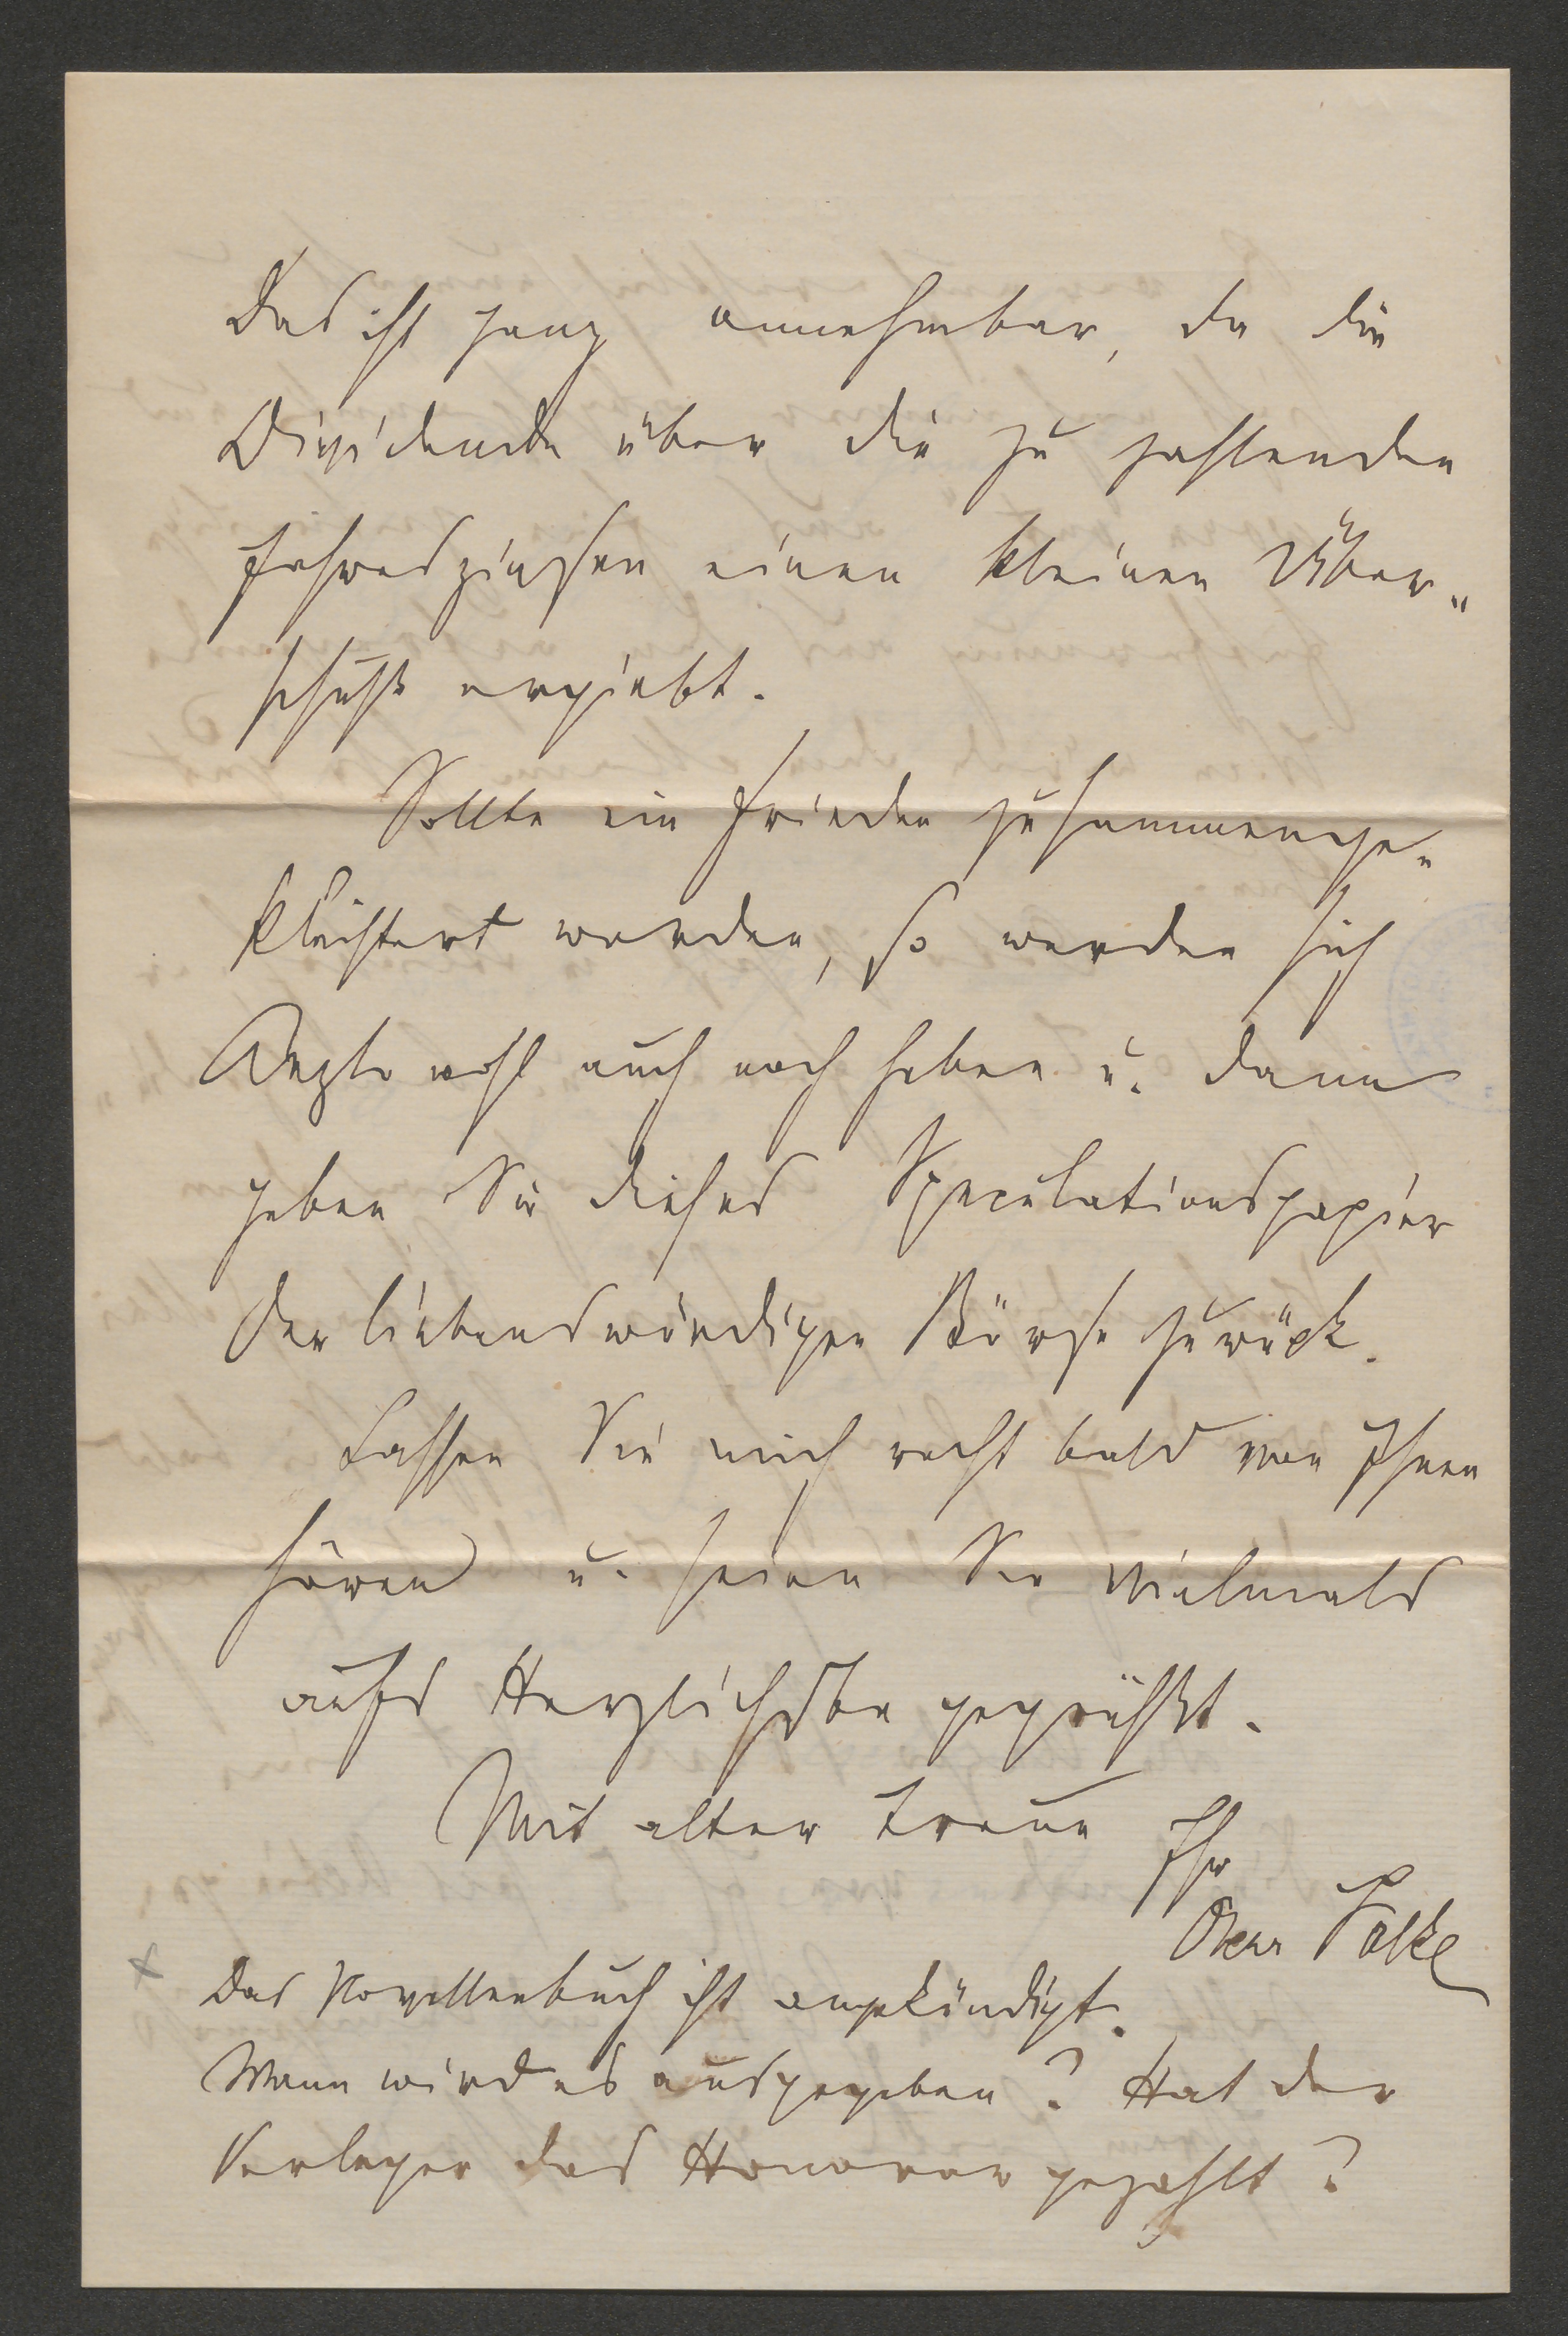 Das ist ganz annehmbar, da die
Dividende über die zu zahlenden
Jahreszinsen einen kleinen Über-
schuß ergiebt.
Sollte ein Frieden zusammenge-
kleistert werden, so werden sich
wohl auch noch heben u. dann
geben Sie dieses Speculationspapier
der liebenswürdigen Börse zurück.
Lassen Sie mich recht bald von Ihnen
hören u. seien Sie vielmals
aufs Herzlichste gegrüßt.
Mit alter Treue Ihr
x
Das Novellenbuch ist angekündigt.
Wann wird es ausgegeben? Hat der
Verleger das Honorar gezahlt?